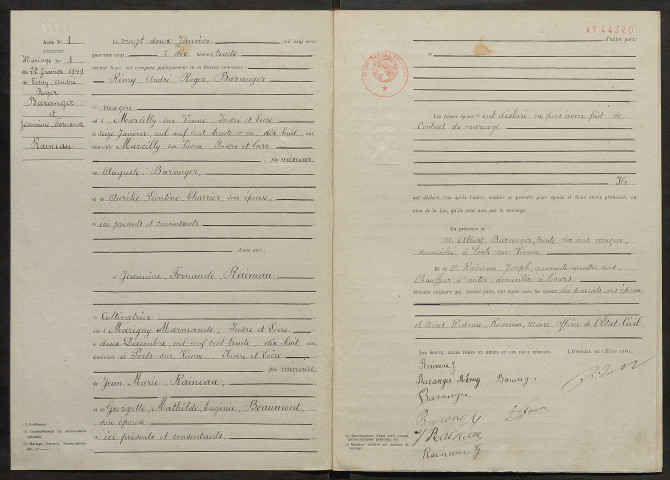 Acte N° 1
Mariage N° 1
du 22 Janvier 1949
de Rémy, André
Roger
Baranger
et
Jeannine, Fernande
Raineau
Le vingt-deux Janvier mil neuf cent
quarante neuf à dix heures trente
devant Nous ont comparu publiquement en la Maison commune
Rémy, André, Roger, Baranger
maçon
né à Marcilly sur Vienne, Indre et Loire
le seize Janvier, mil neuf cent trente et un, dix huit ans
Marcilly sur Vienne Indre et Loire
fils mineur
de Auguste Baranger,
et de Aurélie Léontine Charrier, son épouse
ici présents et consentants
d'une part;
et Jeannine, Fernande, Raineau
Cultivatrice
née à Marigny Marmande, Indre et Loire
le deux Décembre, mil neuf cent trente, dix huit ans
à Ports sur Vienne, Indre et Loire
fille mineure
de Jean Marie, Raineau,
et de Georgette, Mathilde, Eugénie, Beaumont,
son épouse
ici présents et consentants.
AT44320
d'autre part;
Les futurs époux ont déclaré ne pas avoir fait de
Contrat de mariage.
Ils
ont déclaré, l'un après l'autre, vouloir se prendre pour époux et Nous avons prononcé, au
nom de la Loi, qu'ils sont unis par le mariage.
En présence de
M. Albert, Baranger, trente six ans, maçon,
domicilié à Ports sur Vienne
et de M. Raineau, Joseph, quarante quatre ans,
Chauffeur d'autos, domicilié à Tours
témoins majeurs qui, lecture faite, ont signé avec les époux, les parents des époux
et Nous, Maire, Officier de l'Etat Civil.
L'Officier de l'Etat Civil,
Raineau J
Baranger Rémy Baranger
Baranger
Baranger
J Raineau
Raineau G